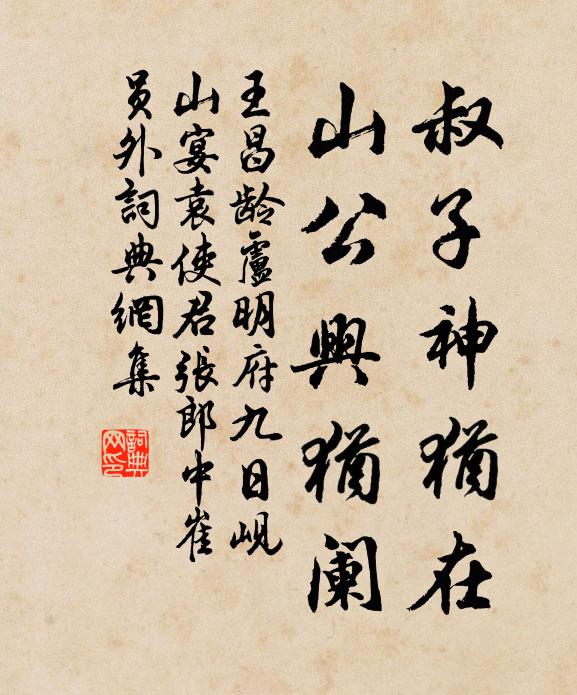 叔子神猶在
山公興猶阑
王昌龄盧明府九日峴
山宴袁使君張郎中崔
员外詞典網集
詞典
网印